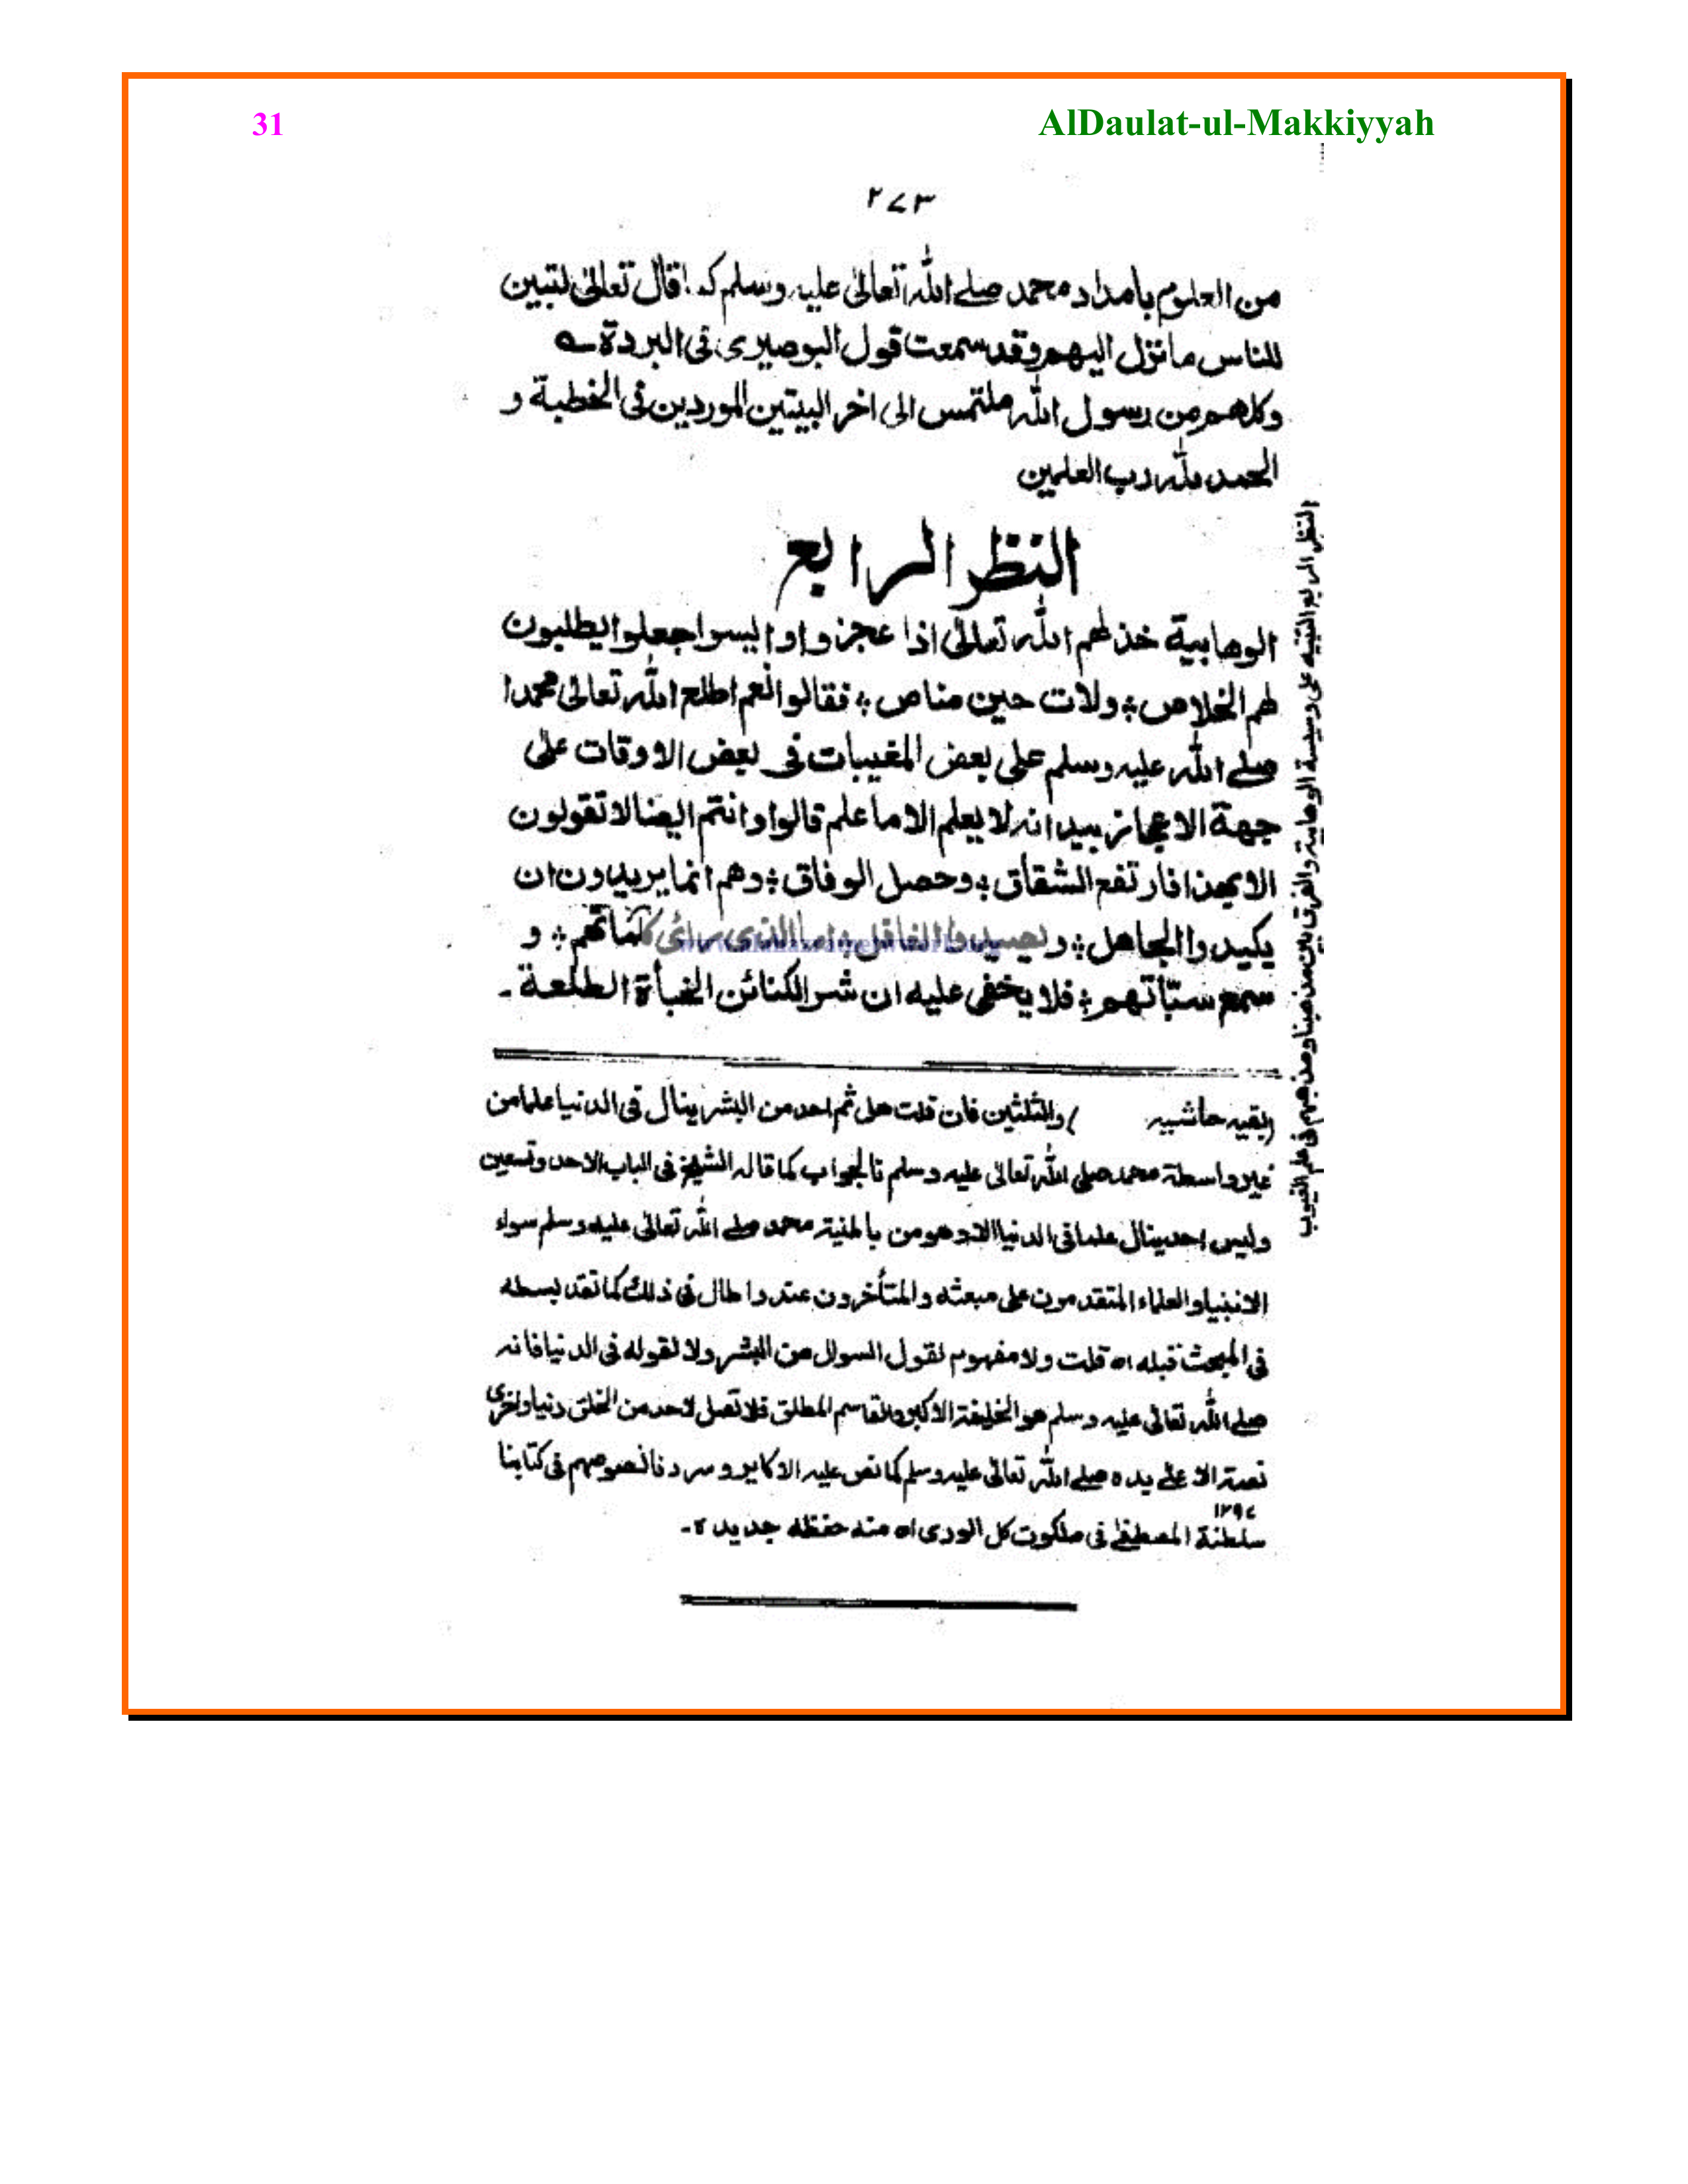 31
AlDaulat-ul-Makkiyyah
٢٧٣
من العلوم بامداد محمد صلے الله تعالیٰ علیہ وسلم کما قال تعالیٰ لتبین
للناس ما نزل الیهم وقد سمعت قول البوصیری فی البردة ے
وکلهم من رسول الله ملتمس الی اخر البیتین الموردین فی الخطبة و
الحمد لله رب العلمین
النظر الرابع
الوهابیة خذلهم الله تعالیٰ اذا عجزوا وابسوا جعلوا یطلبون
لهم الخلاص ؛ ولات حین مناص ؛ فقالوا نعم اطلع الله تعالیٰ محمدا
صلے الله علیہ وسلم علی بعض المغیبات فی بعض الاوقات علی
جهة الاعجاز بید انه لا یعلم الا ما علم قالوا وانتم ایضا لا تقولون
الا بهذا فارتفع الشقاق ؛ وحصل الوفاق ؛ وهم انما یریدون ان
یکیدوا الجاهل ؛ ویصیدوا الغافل ؛ اما الذی رائی کلماتهم ؛ و
سمع سبّاتهم ؛ فلا یخفی علیه ان شر الکنائن الخبأة الطلعة ۔
النظر الرابع التنبیه علی دسیسة الوهابیة والفرق بین مذهبنا ومذهبهم فی علم الغیوب
(بقیہ حاشیہ ) والثلثین فان قلت هل ثم احد من البشر ینال فی الدنیا علما من
غیر واسطة محمد صلی الله تعالیٰ علیه وسلم فالجواب کما قاله الشیخ فی الباب الاحد وتسعین
ولیس احد ینال علما فی الدنیا الا وهو من باطنیة محمد صلے الله تعالیٰ علیه وسلم سواء
الانبیاء والعلماء المتقدمون علی مبعثه والمتأخرون عنه واطال فی ذلك کما تقدم بسطه
فی المبحث قبله اه قلت ولا مفهوم لقول السوال من البشر ولا لقوله فی الدنیا فانه
صلے الله تعالیٰ علیه وسلم هو الخلیفة الاکبر والقاسم المطلق فلا تصل لاحد من الخلق دنیا واخری
نعمة الا علی یده صلے الله تعالیٰ علیه وسلم کما نص علیه الاکابر وسردنا نصوصهم فی کتابنا
١٢٩٧
سلطنة المصطفےٰ فی ملکوت کل الوری اه منه حفظه جدیدة ۔